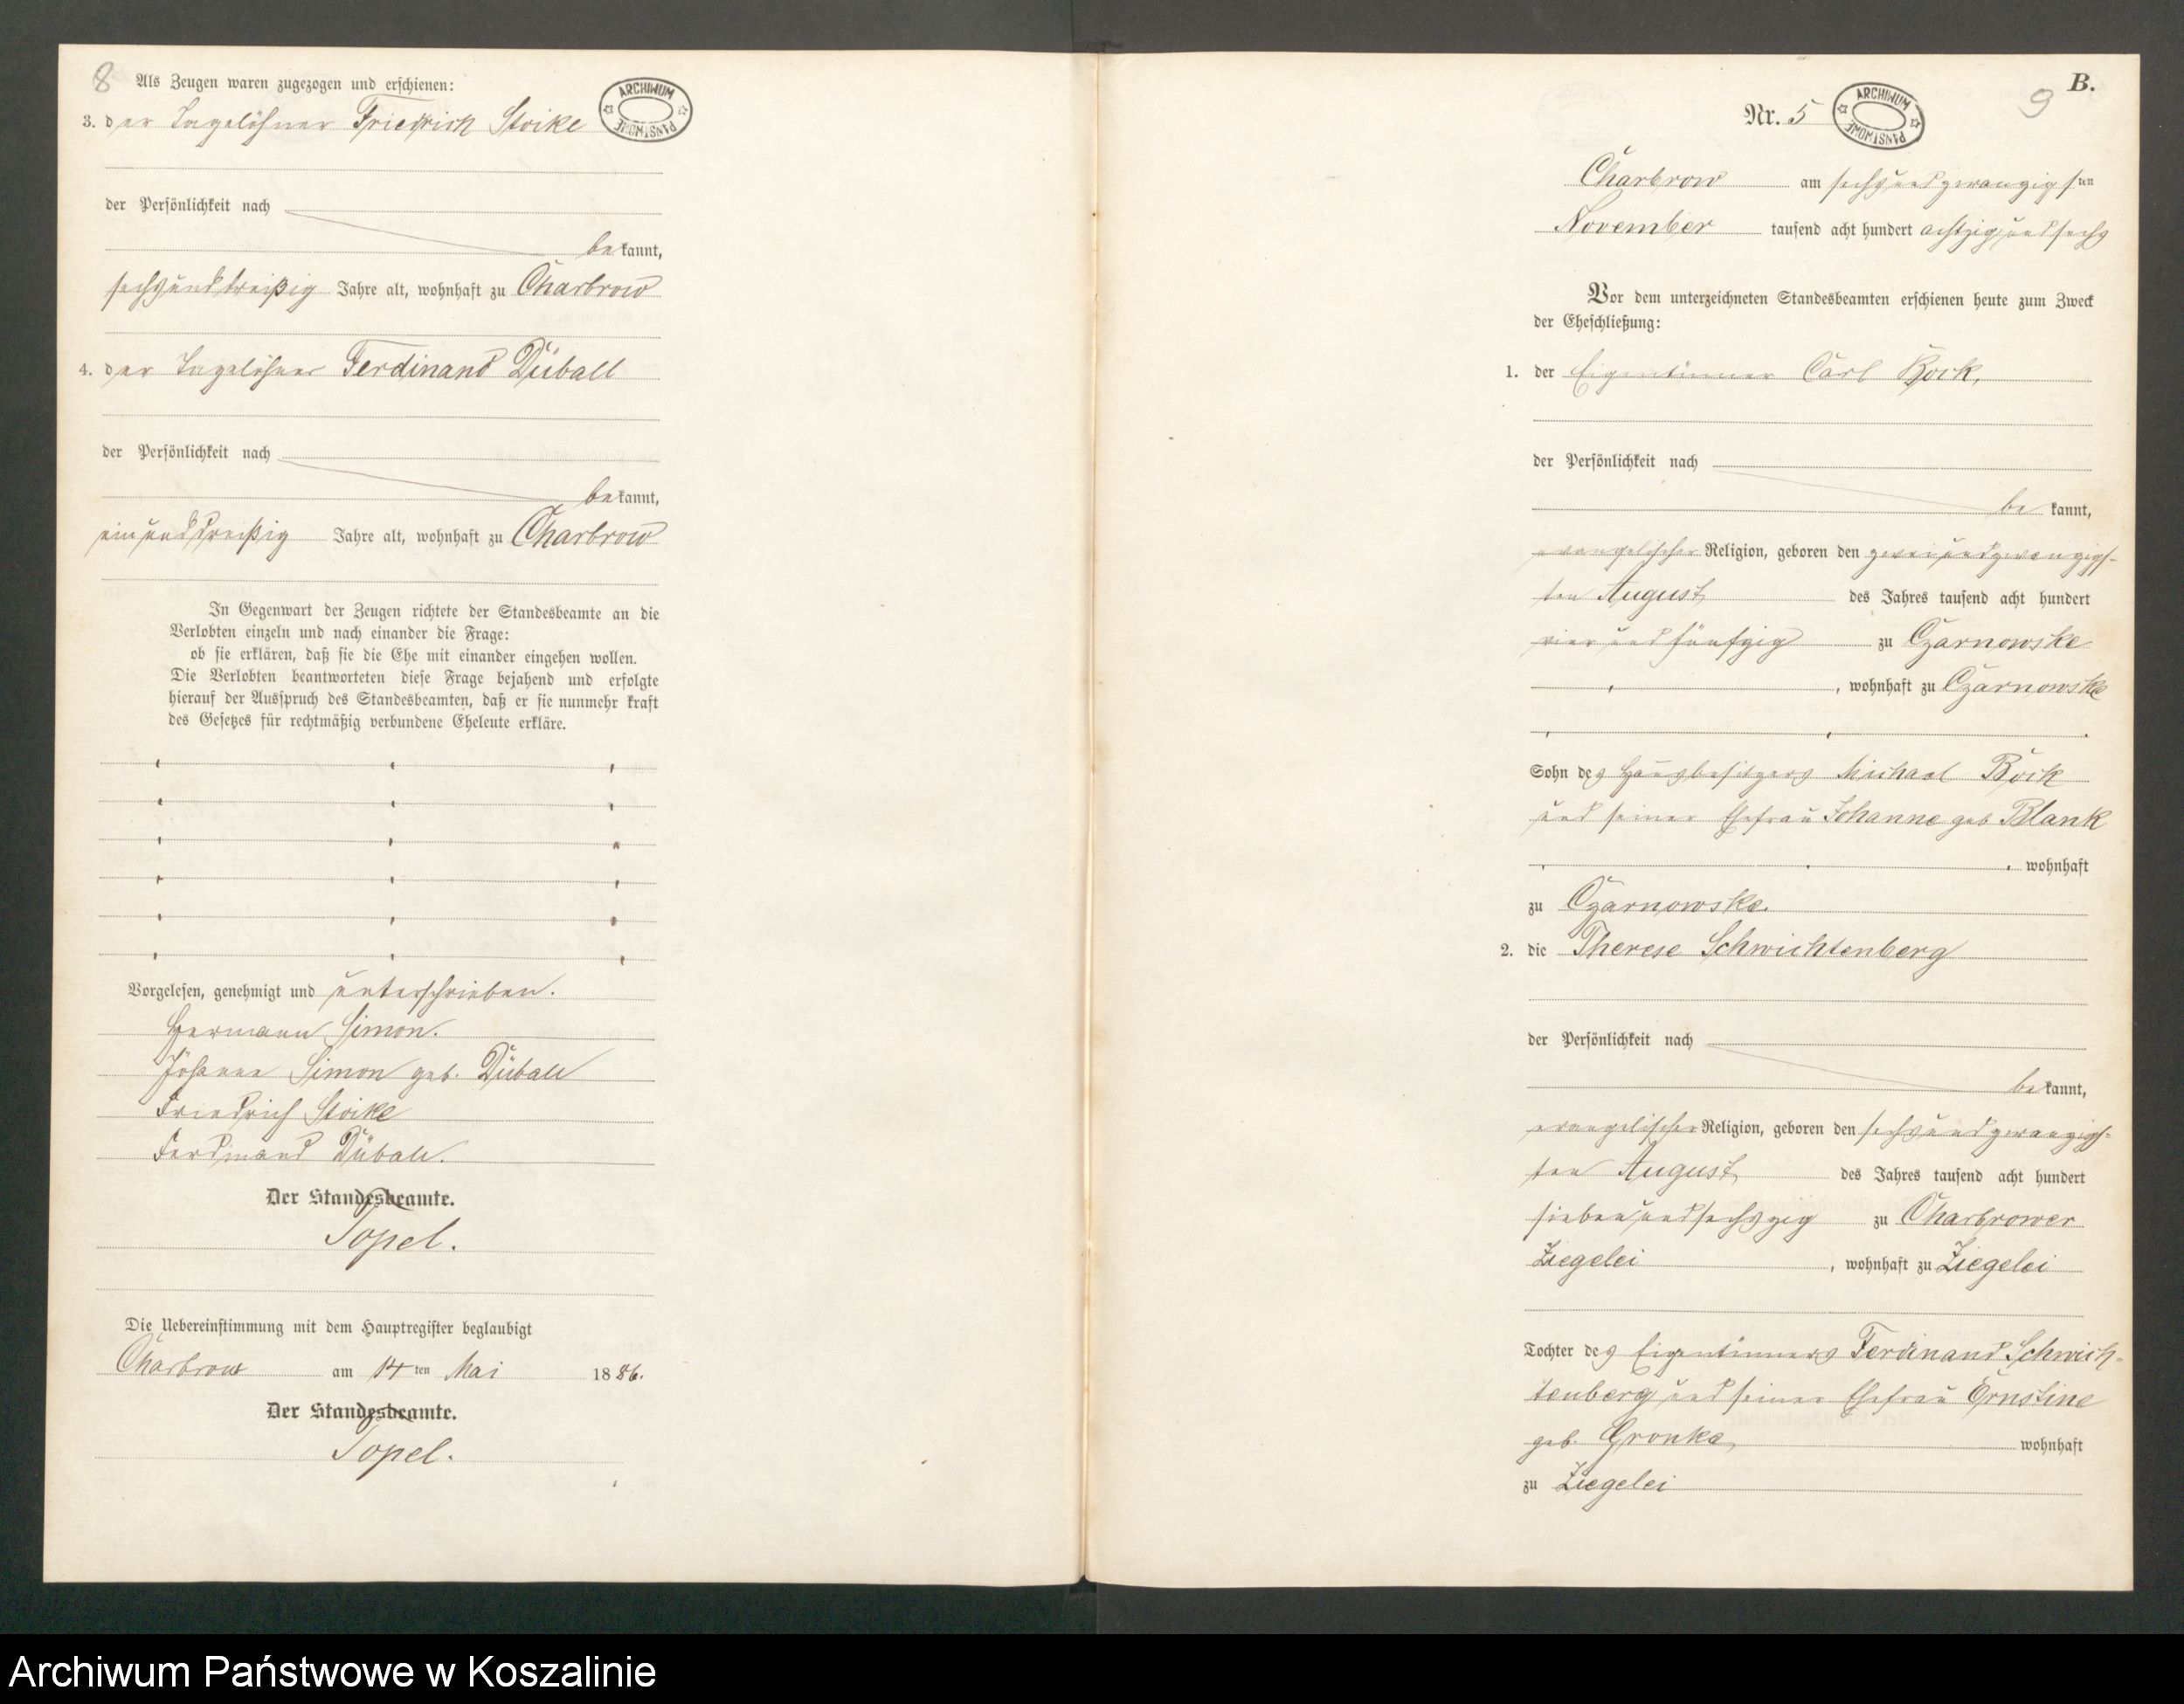 8
Als Zeugen waren zugezogen und erschienen:
ARCHIWUM PAŃSTWOWE
3. der Tagelöhner Friedrich Stoike
der Persönlichkeit nach
bekannt,
sechsunddreißig Jahre alt, wohnhaft zu Charbrow
4. der Tagelöhner Ferdinand Düball
der Persönlichkeit nach
bekannt,
einunddreißig Jahre alt, wohnhaft zu Charbrow
In Gegenwart der Zeugen richtete der Standesbeamte an die
Verlobten einzeln und nach einander die Frage:
ob sie erklären, daß sie die Ehe mit einander eingehen wollen.
Die Verlobten beantworteten diese Frage bejahend und erfolgte
hierauf der Ausspruch des Standesbeamten, daß er sie nunmehr kraft
des Gesetzes für rechtmäßig verbundene Eheleute erkläre.
Vorgelesen, genehmigt und unterschrieben.
Hermann Simon.
Johanne Simon geb. Düball
Friedrich Stoike
Ferdinand Düball.
Der Standesbeamte.
Topel.
Die Uebereinstimmung mit dem Hauptregister beglaubigt
Charbrow am 14ten Mai 1886.
Der Standesbeamte.
Topel.
B.
9
Nr. 5
ARCHIWUM PAŃSTWOWE
Charbrow am sechsundzwanzigsten
November tausend acht hundert achtzig und sechs
Vor dem unterzeichneten Standesbeamten erschienen heute zum Zweck
der Eheschließung:
1. der Eigentümer Carl Bock,
der Persönlichkeit nach
bekannt,
evangelischer Religion, geboren den zweiundzwanzigs-
ten August des Jahres tausend acht hundert
vier und fünfzig zu Czarnowske
, wohnhaft zu Czarnowske
Sohn des Hausbesitzers Michael Bock
und seiner Ehefrau Johanne geb Blank
wohnhaft
zu Czarnowske.
2. die Therese Schwichtenberg
der Persönlichkeit nach
bekannt,
evangelischer Religion, geboren den sechsundzwanzigs-
ten August des Jahres tausend acht hundert
siebenundsechszig zu Charbrower
Ziegelei, wohnhaft zu Ziegelei
Tochter des Eigentümers Ferdinand Schwich-
tenberg und seiner Ehefrau Ernstine
geb. Gronke wohnhaft
zu Ziegelei
Archiwum Państwowe w Koszalinie